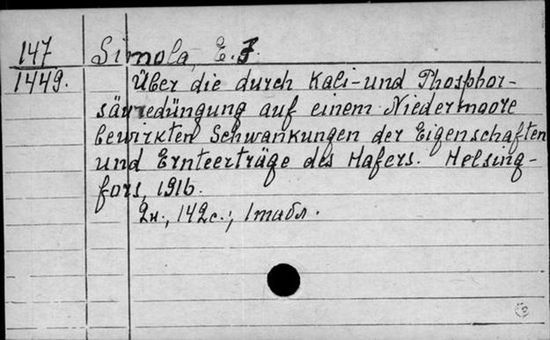 147 Simola, E. F.
1449. Über die durch Kali- und Phosphor-
säuredüngung auf einem Niedermoore
bewirkten Schwankungen der Eigenschaften
und Ernteerträge des Hafers. Helsing-
fors, 1916.
2н., 142с.; 1 табл.